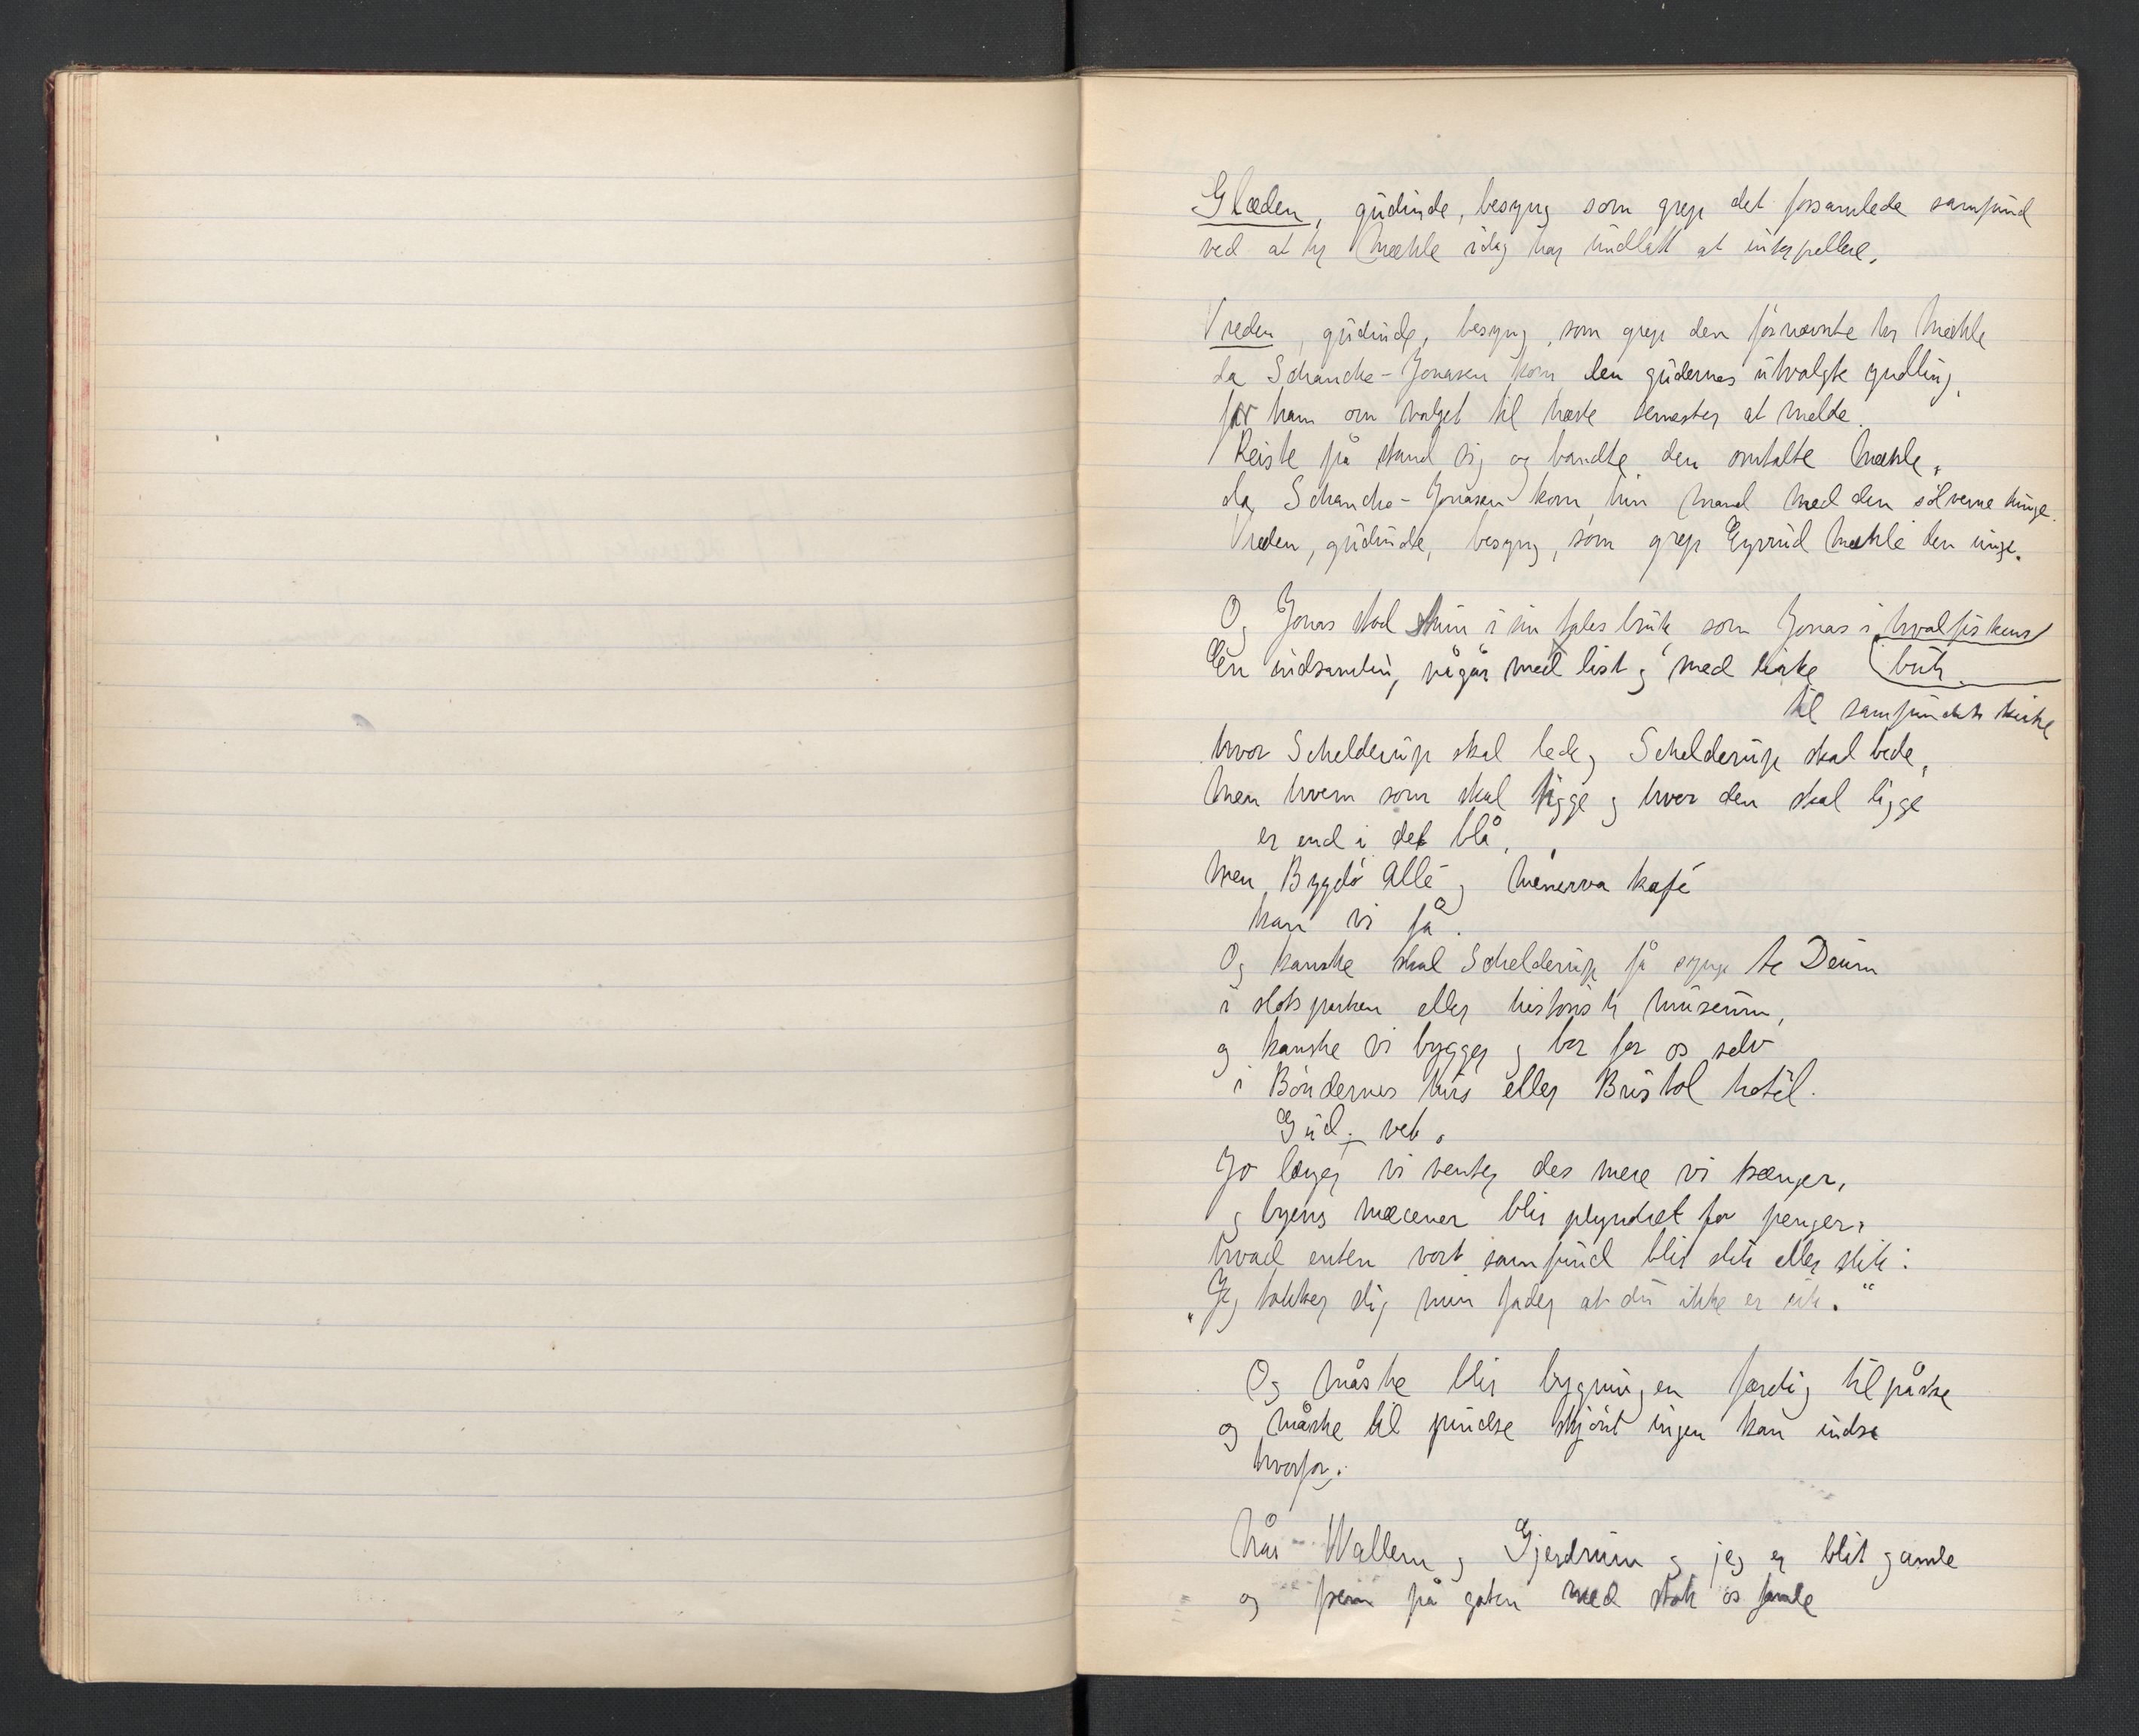 Glæden, gudinde, besyng som grep det forsamlede samfund
ved at hr Mæhle idag har undlatt at interpellere.
Vreden, gudinde, besyng, som grep den fornævnte hr Mæhle
da Schancke-Jonasen kom, den gudernes utvalgte yndling,
for ham om valget til næste semester at melde.
Reiste på stand sig og bandte den omtalte Mæhle,
da Schancke-Jonasen kom, hin mand med den sølverne tunge.
Vreden, gudinde, besyng, som grep Eyvind Mæhle den unge.
Og Jonas stod stum i sin tales bruk som Jonas i hvalfiskens
buk.
En indsamling pågår med list og med lirke
til samfundets kirke
hvor Schelderup skal lede og Schelderup skal bede,
men hvem som skal bygge og hvor den skal ligge
er end i det blå,
men Bygdø Allé og Minerva kafé
kan vi få.
Og kanske skal Schelderup få synge te Deum
i slotsparken eller historisk museum,
og kanske vi bygger og bor for os selv
i Bøndernes hus eller Bristol hotel.
Gud vet.
Jo længer vi venter des mere vi trænger,
og byens mæcener blir plyndret for penger,
hvad enten vort samfund blir slik eller slik:
"Jeg takker dig min fader at du ikke er rik."
Og måske blir bygningen færdig til påske
og måske til pindse skjønt ingen kan indse
hvorfor.
Når Wallem og Gjerdrum og jeg er blit gamle
og frem på gaten med stok os famle